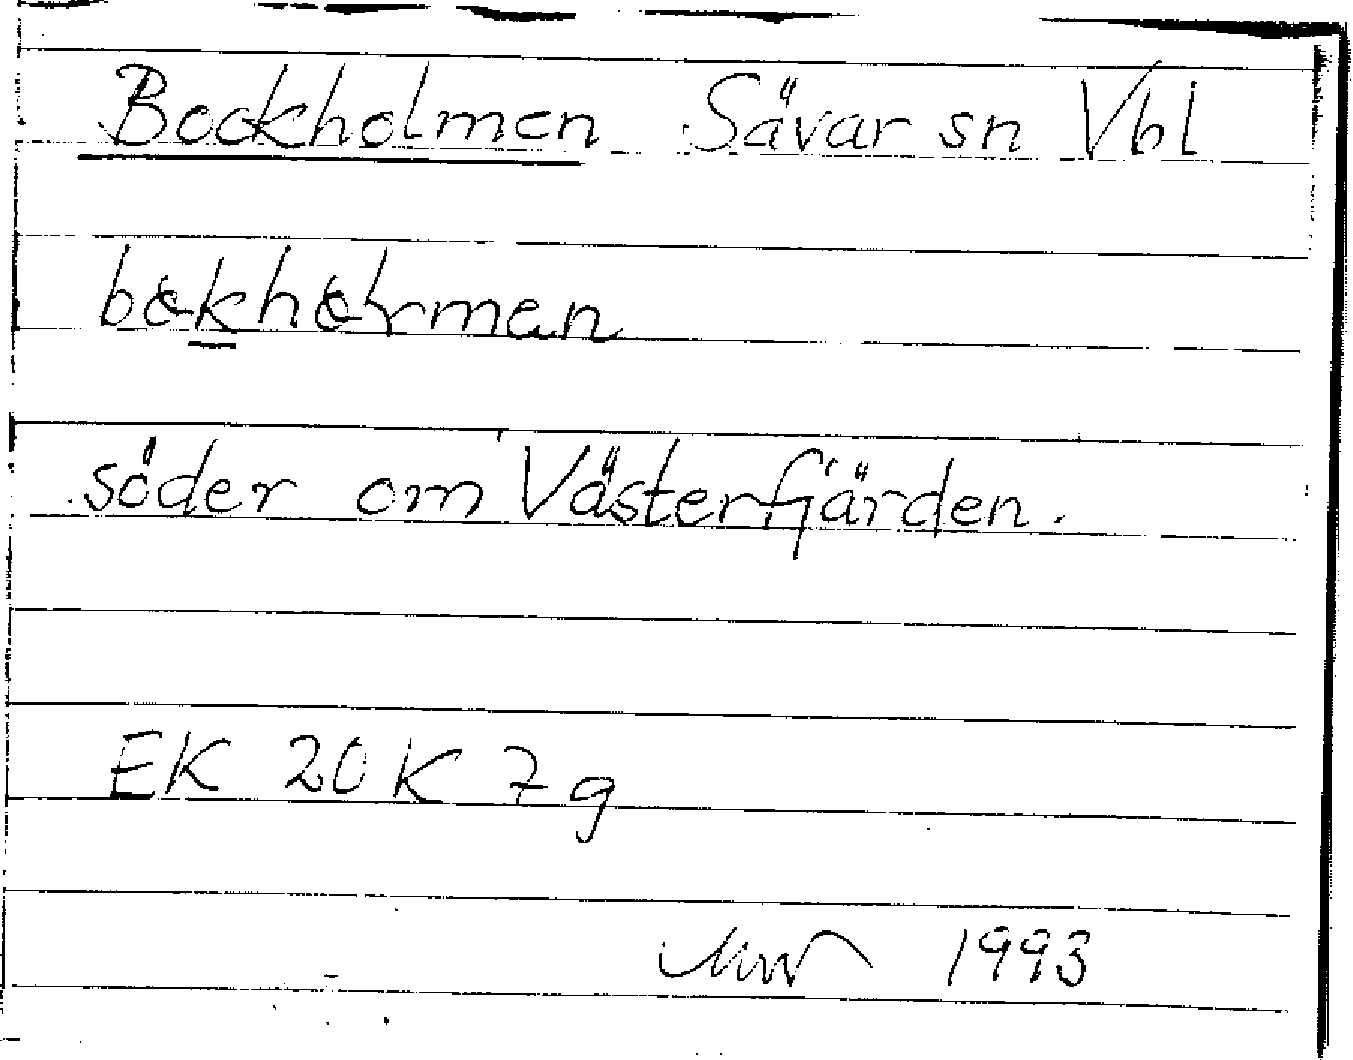 Bockholmen Sävar sn Vbl
bokholmen
söder om Västerfjärden.
EK 20K 7g
1993